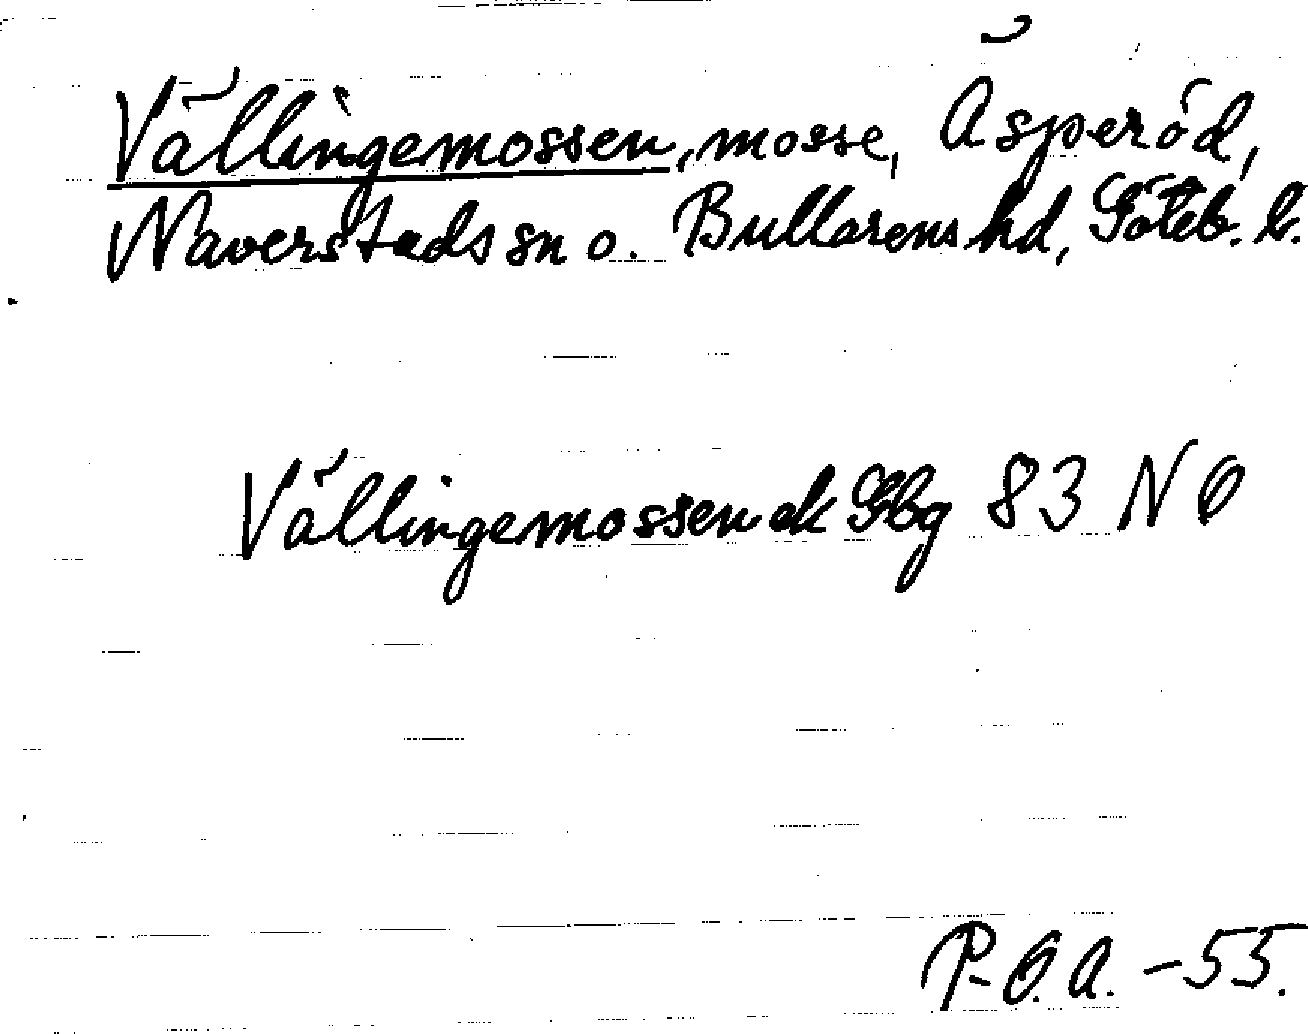 Vällingemossen, mosse, Äsperöd,
Naverstads sn o. Bullarens hd, Göteb. l.
Vällingemossen ek Gbg 83 NO
P-O. A. -55.